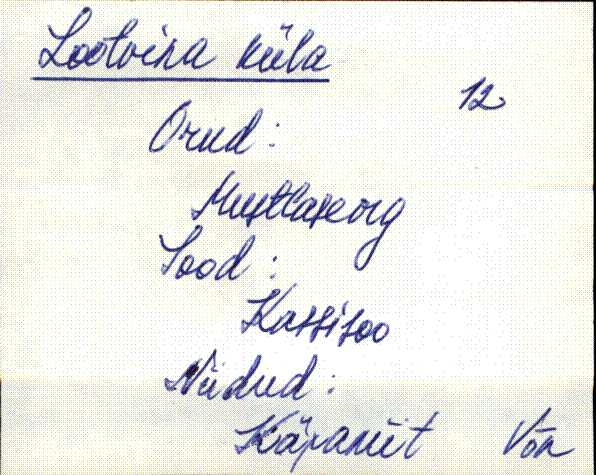 Lootvina küla
12
Orud:
Mustlaseorg
Sood:
Kassisoo
Niidud:
Käpaniit Võn